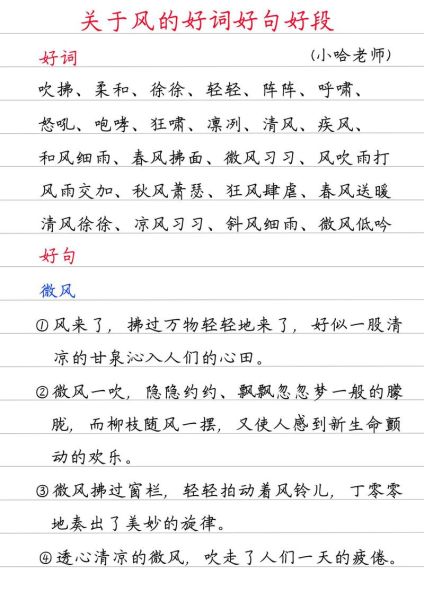 关于风的好词好句好段
好词
(小哈老师)
吹拂、柔和、徐徐、轻轻、阵阵、呼啸、
怒吼、咆哮、狂啸、凛冽、清风、疾风、
和风细雨、春风拂面、微风习习、风吹雨打
风雨交加、秋风萧瑟、狂风肆虐、春风送暖
清风徐徐、凉风习习、斜风细雨、微风低吟
好句
微风
①风来了，拂过万物轻轻地来了，好似一股清
凉的甘泉沁入人们的心田。
②微风一吹，隐隐约约、飘飘忽忽梦一般的朦
胧，而柳枝随风一摆，又使人感到新生命颤
动的欢乐。
③微风拂过窗栏，轻轻拍动着风铃儿，丁零零
地奏出了美妙的旋律。
④透心清凉的微风，吹走了人们一天的疲倦。